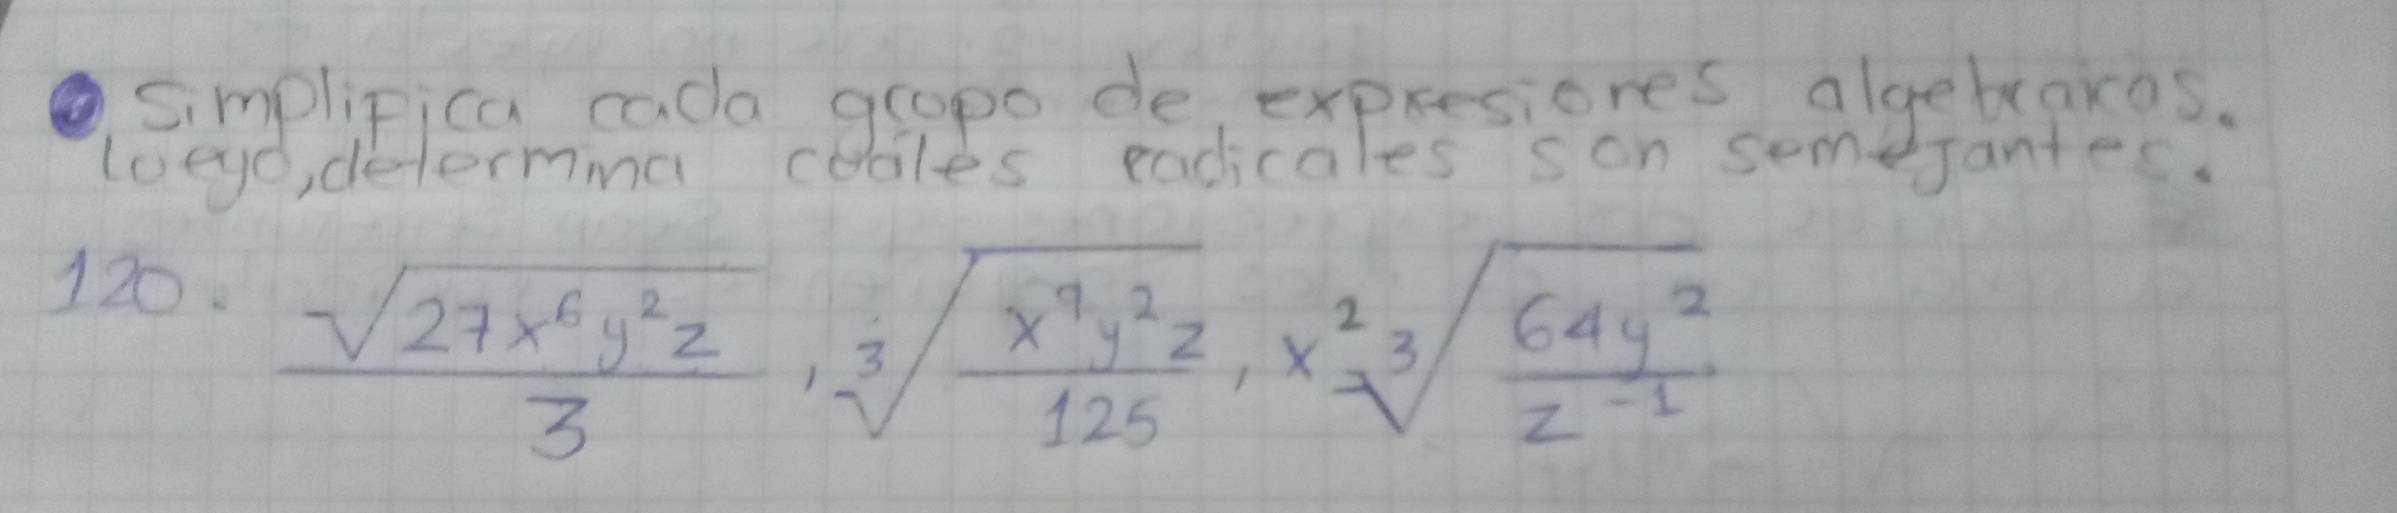 Simplifica cada grupo de expresiones algebraicas.
luego, determina cuáles radicales son semejantes.
120. √(27x⁶y²z)/3 , ³√(x⁹y²z/125) , x² ³√(64y²/z⁻¹)